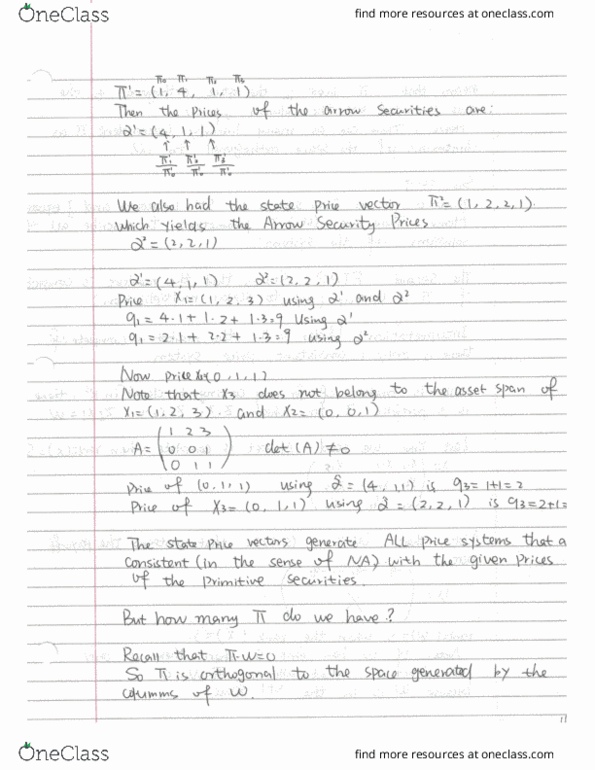 OneClass
find more resources at oneclass.com
π₀ π₁ π₂ π₃
π¹ = (1, 4, 1, 1)
Then the prices of the arrow securities are:
α¹ = (4, 1, 1)
↑ ↑ ↑
π₁¹/π₀¹ π₂¹/π₀¹ π₃¹/π₀¹
We also had the state price vector π² = (1, 2, 2, 1).
which yields the Arrow Security Prices
α² = (2, 2, 1)
α¹ = (4, 1, 1) α² = (2, 2, 1)
Price X₁ = (1, 2, 3) using α¹ and α²
q₁ = 4·1 + 1·2 + 1·3 = 9 Using α¹
q₁ = 2·1 + 2·2 + 1·3 = 9 using α²
Now price X₃(0, 1, 1)
Note that X₃ does not belong to the asset span of
X₁ = (1, 2, 3) and X₂ = (0, 0, 1)
1 2 3
A = 0 0 1 det (A) ≠ 0
0 1 1
Price of (0, 1, 1) using α̂ = (4, 1, 1) is q₃ = 1+1 = 2
Price of X₃ = (0, 1, 1) using α̂ = (2, 2, 1) is q₃ = 2+1=
The state price vectors generate ALL price systems that a
consistent (in the sense of NA) with the given prices
of the primitive securities.
But how many π do we have?
Recall that π·W=0
So π is orthogonal to the space generated by the
columms of W.
11
OneClass
find more resources at oneclass.com